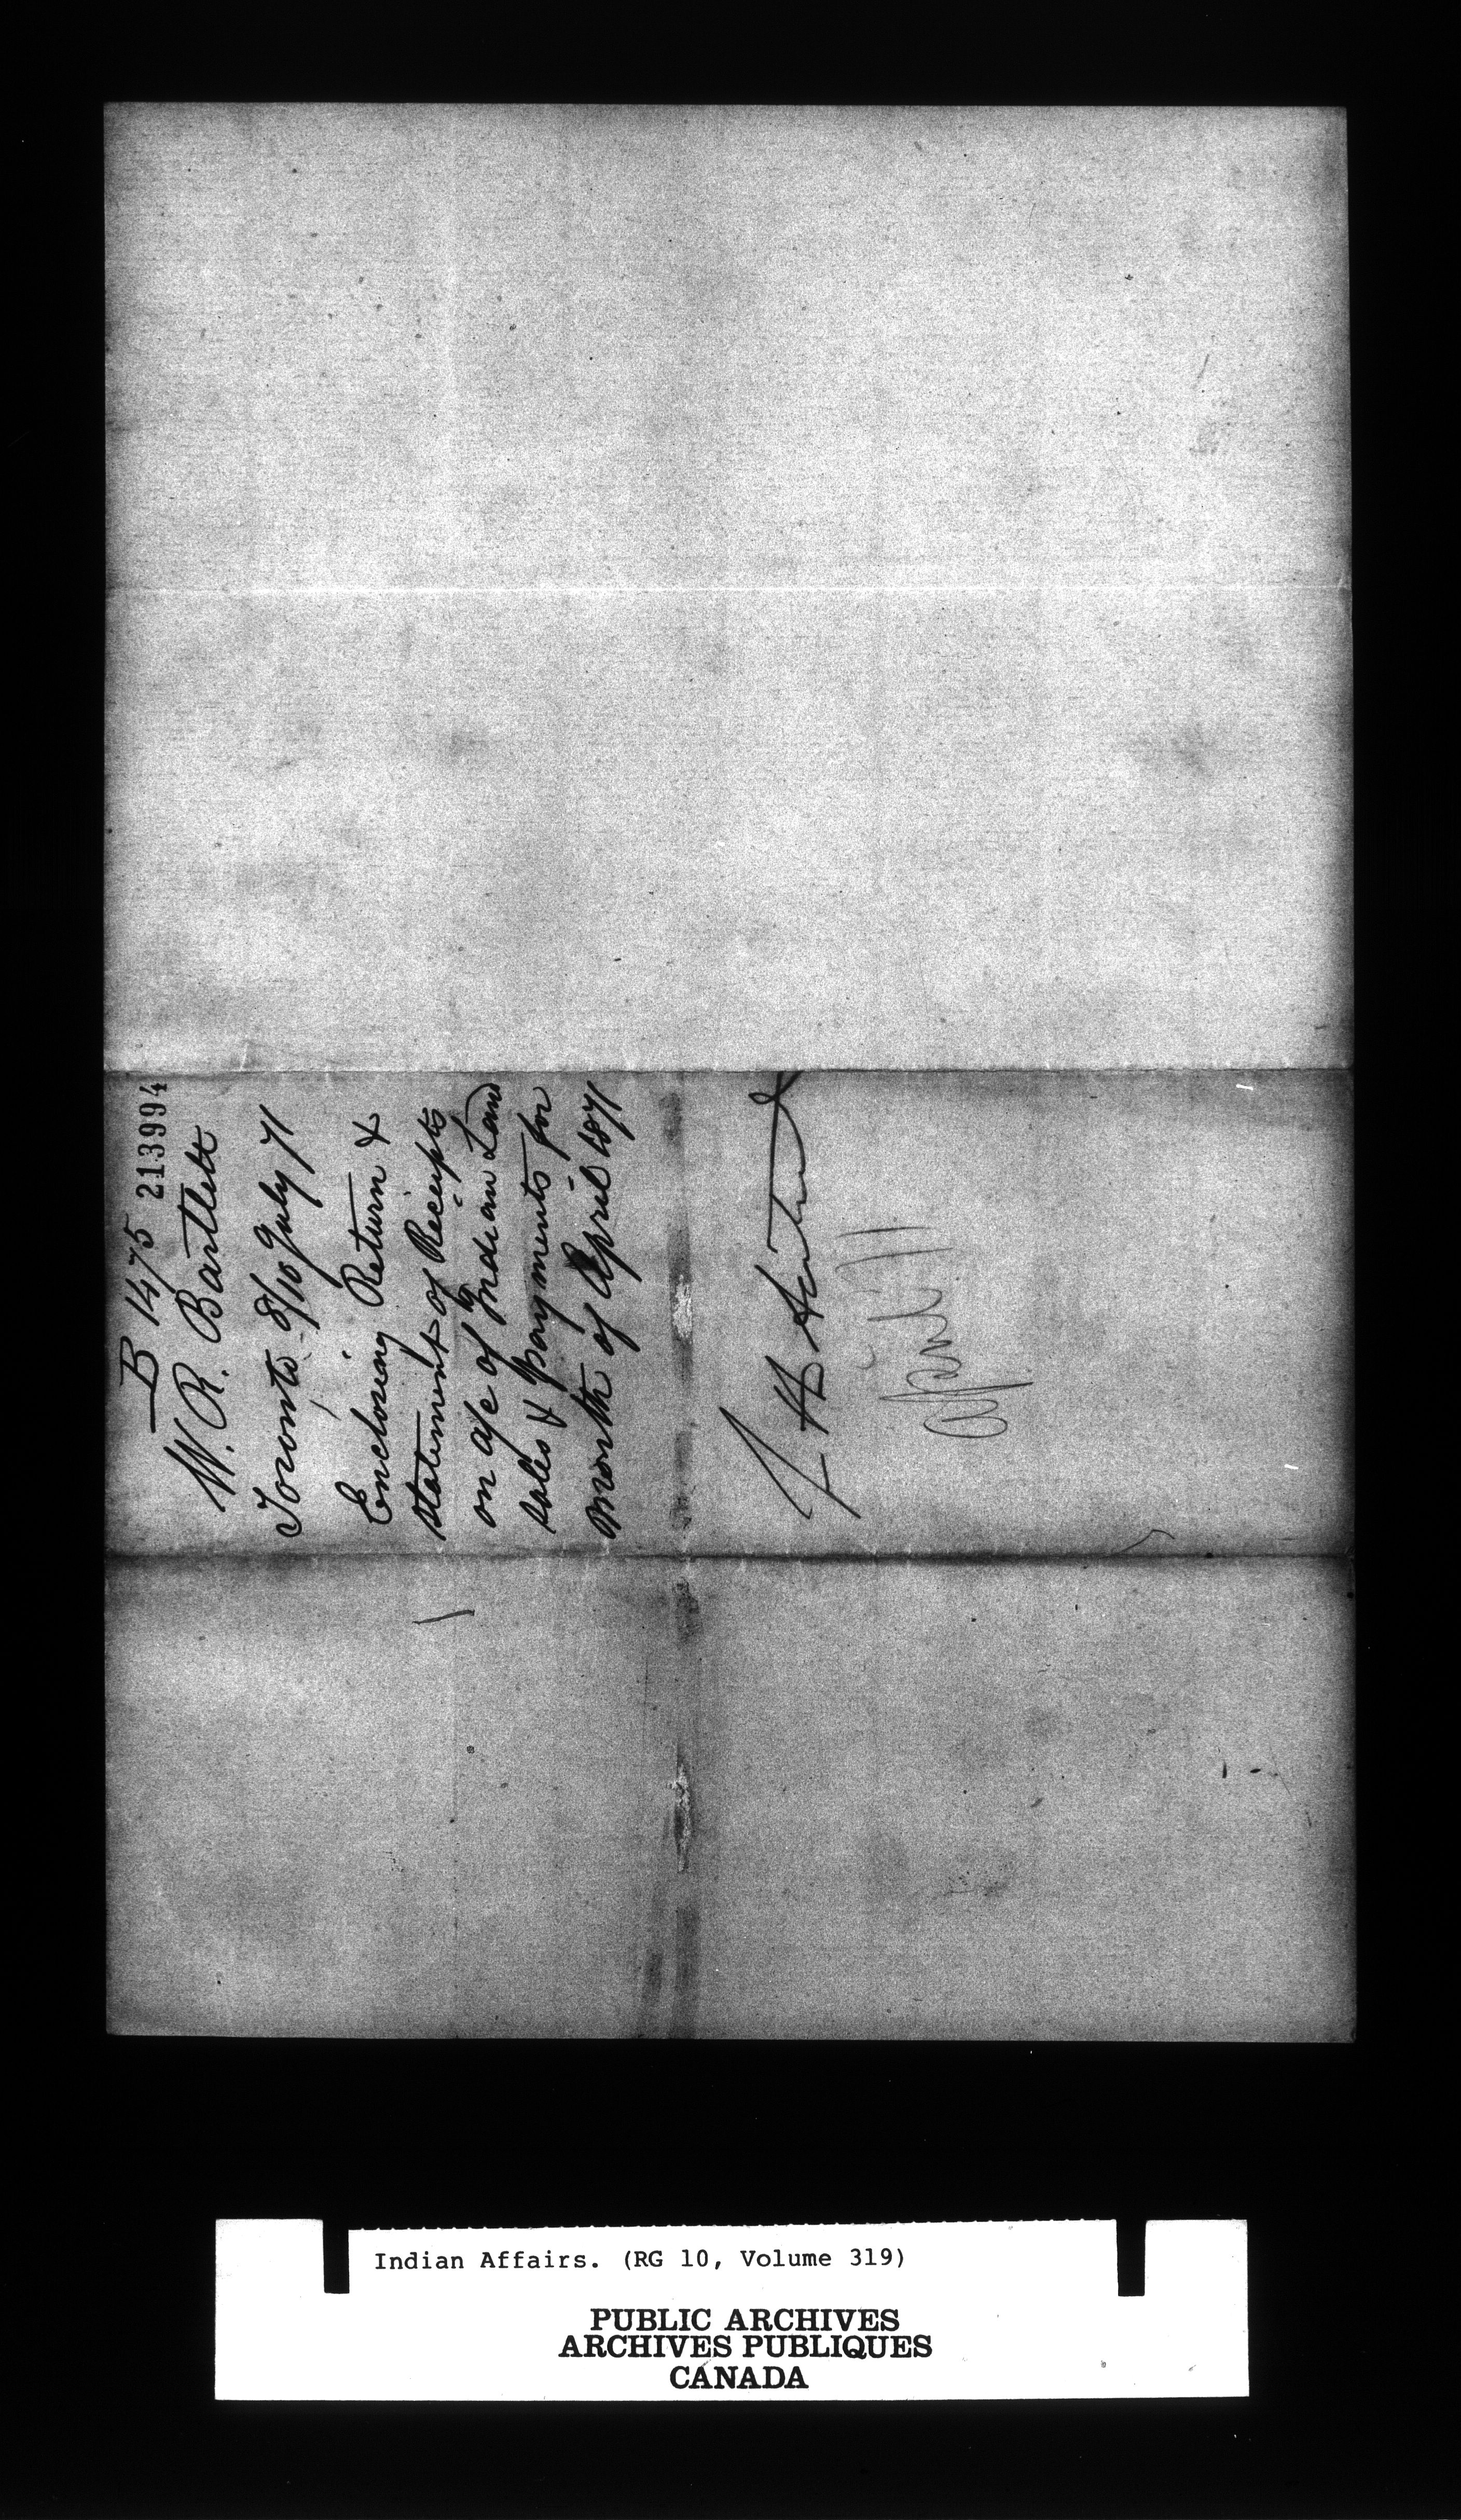 B 1475 213994
W. R. Bartlett
Toronto 8/10 July 71
Enclosing Return &
Statement of Receipts
on a/c of Indian Land
sales & payments for
month of April 1871
April 71
Indian Affairs. (RG 10, Volume 319)
PUBLIC ARCHIVES
ARCHIVES PUBLIQUES
CANADA